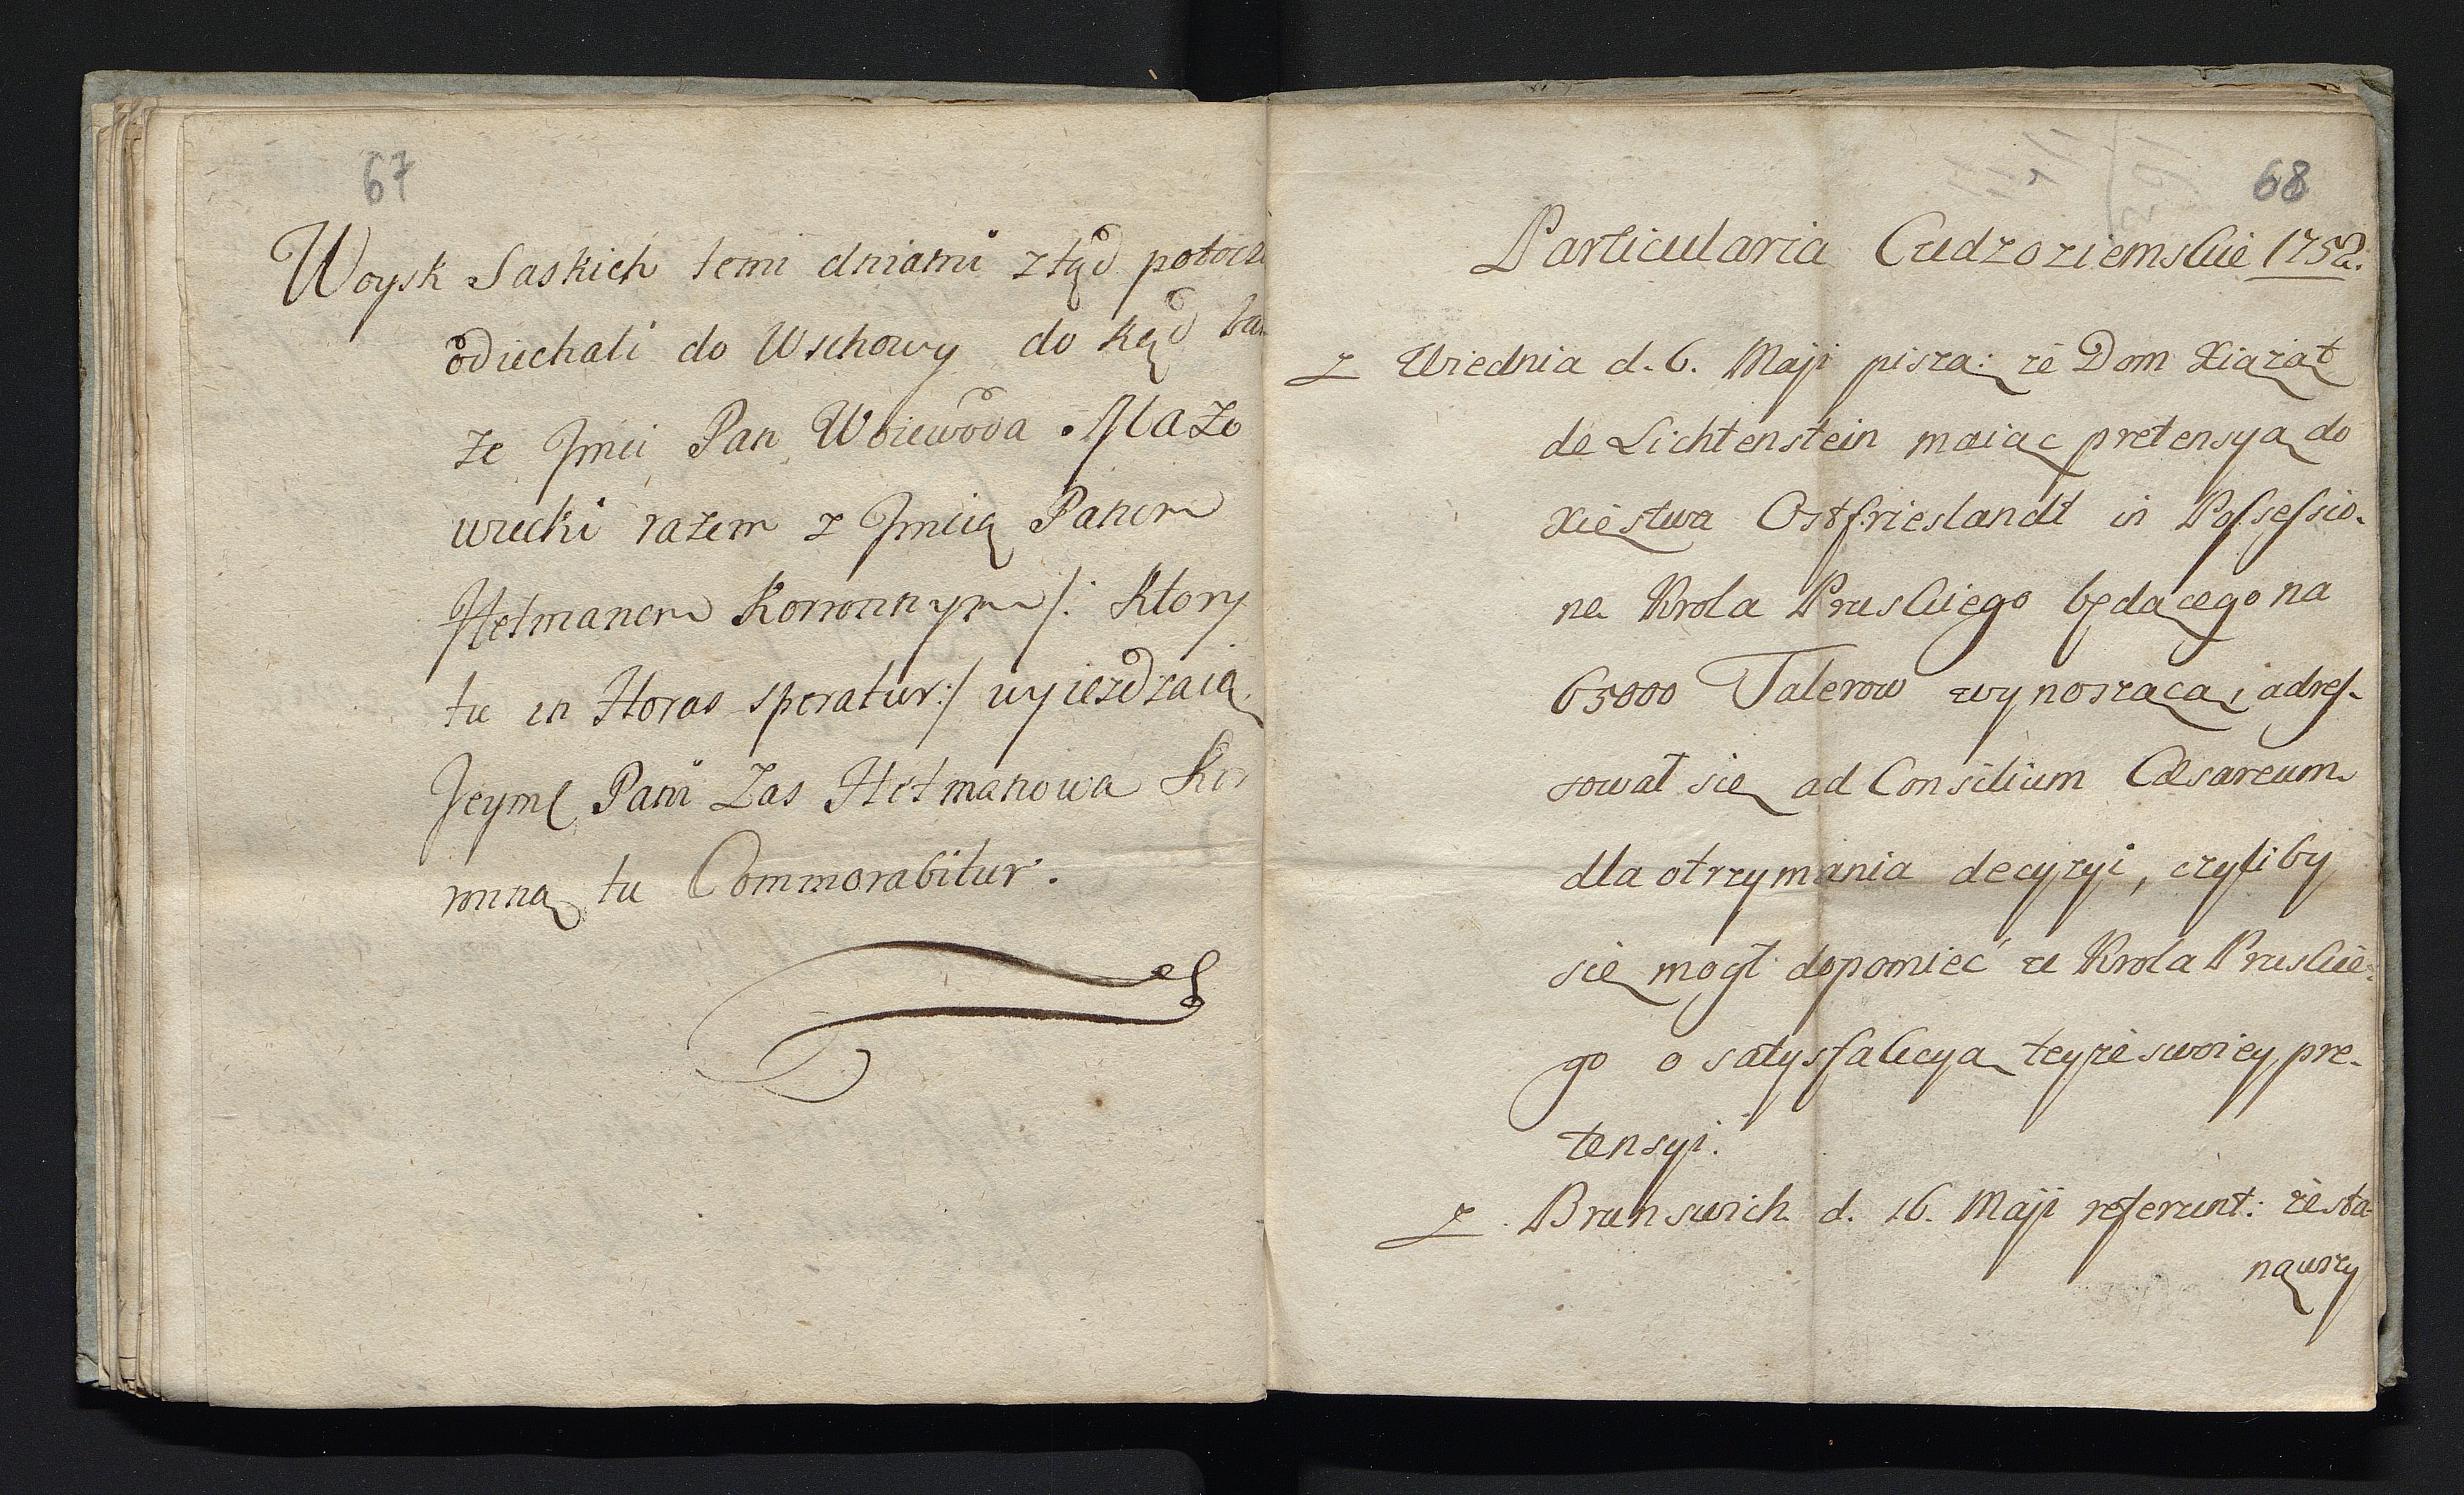 67
Woysk Saskich temi dniami ztąd
odiechali do Wschowy do kąd
że Jmci Pan Woiewoda Mazo
wiecki razem z Jmcią Panem
Hetmanem Koronnym /: Ktory
tu in Horas speratur :/ wyieżdzaią,
Jeymć Pani Zas Hetmanowa Kor
onna tu Commorabitur.
68
Particularia Cudzoziemskie 1752.
z Wiednia d. 6. Maji piszą: że Dom Xiążąt
de Lichtenstein maiąc pretensyą do
Xięstwa Ostfrieslandt in Possessio-
ne Krola Pruskiego będącego na
65000 Talerow wynoszącą, adres-
sował się ad Consilium Cæsareum
dla otrzymania decyzyi, czyliby
się mogł dopomieć u Krola Pruskie-
go o satysfakcyą teyże swoiey pre-
tensyi.
z Brunswich d. 16. Maji referunt: że sta-
nąwszy